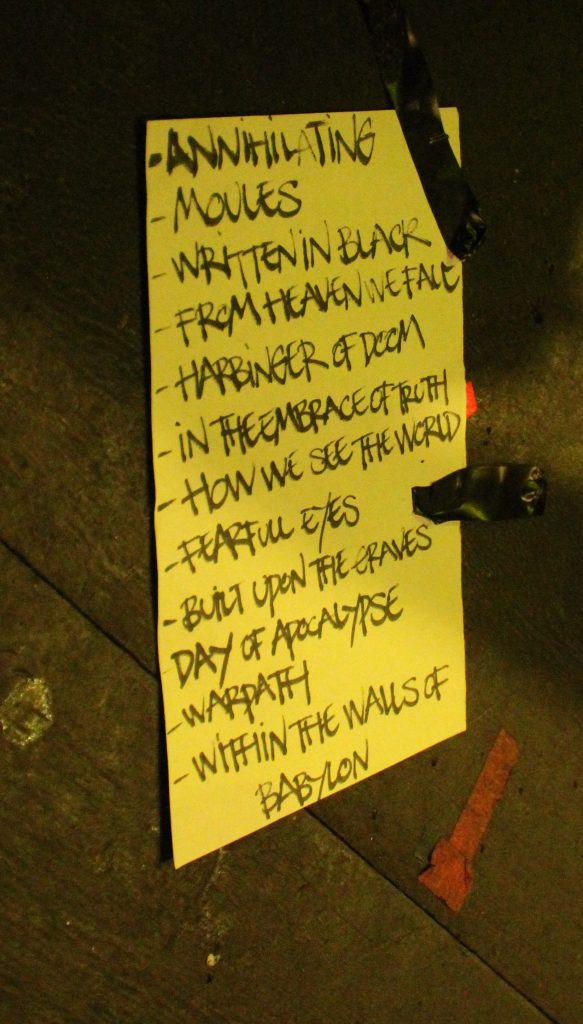 - ANNIHILATING
- MOULES
- WRITTEN IN BLACK
- FROM HEAVEN WE FALL
- HARBINGER OF DOOM
- IN THE EMBRACE OF TRUTH
- HOW WE SEE THE WORLD
- FEARFULL EYES
- BUILT UPON THE GRAVES
DAY OF APOCALYPSE
- WARPATH
- WITHIN THE WALLS OF
BABYLON